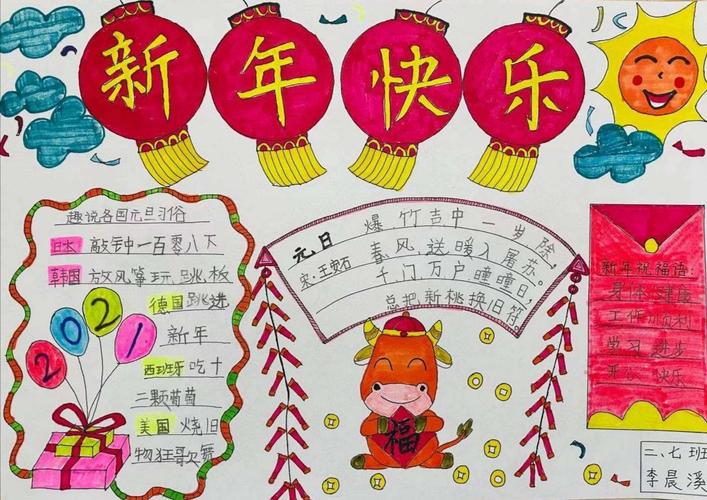 新年快乐
趣说各国元旦习俗
日本 敲钟一百零八下
韩国 放风筝玩跳板
德国 跳进
新年
西班牙 吃十
二颗葡萄
美国 烧旧
物狂歌舞
2021
元日
宋·王安石
爆竹吉中一岁除,
春风送暖入屠苏。
千门万户瞳瞳日,
总把新桃换旧符。
福
新年祝福语:
身体健康
工作顺利
学习进步
开心快乐
二、七班
李晨溪